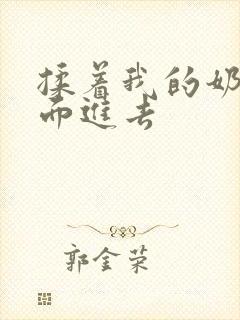 揉着我的奶
而进去
郭金荣